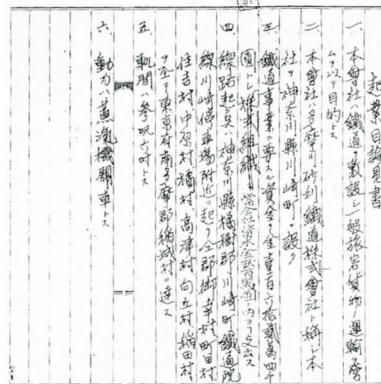 起業目論見書
一、本會社ハ鐵道ヲ敷設シ一般旅客貨物ノ運輸營
ムヲ以テ目的トス
二、本會社ハ多摩川砂利鐵道株式會社ト稱シ本
社ヲ神奈川縣川崎町ニ設ク
三、鐵道事業ニ要スル資金ヲ金壹百六拾貳萬四千
圓トシ株式組織
四、線路起点ハ神奈川縣橘樹郡川崎町鐵道院
線川崎停車場附近ニ起リ仝郡御幸村町田村
住吉村中原村橘村高津村向丘村稲田村
ヲ至ヲ東京府南多摩郡稲城村ニ達ス
五、軌間ハ參呎六吋トス
六、動力ハ蒸汽機關車トス